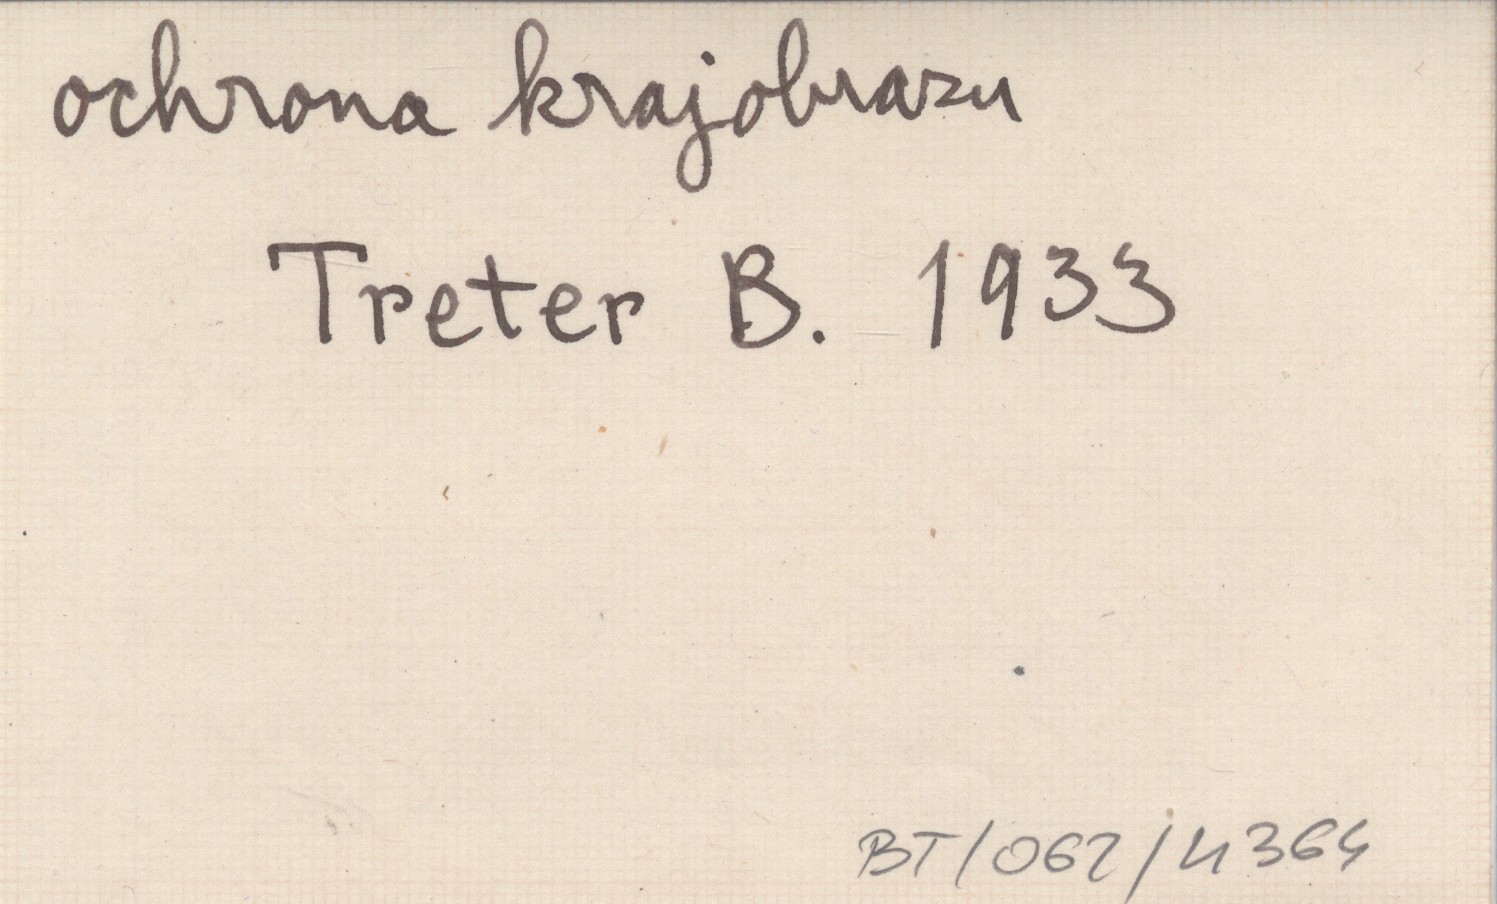 ochrona krajobrazu
Treter B. 1933
BT/062/4364